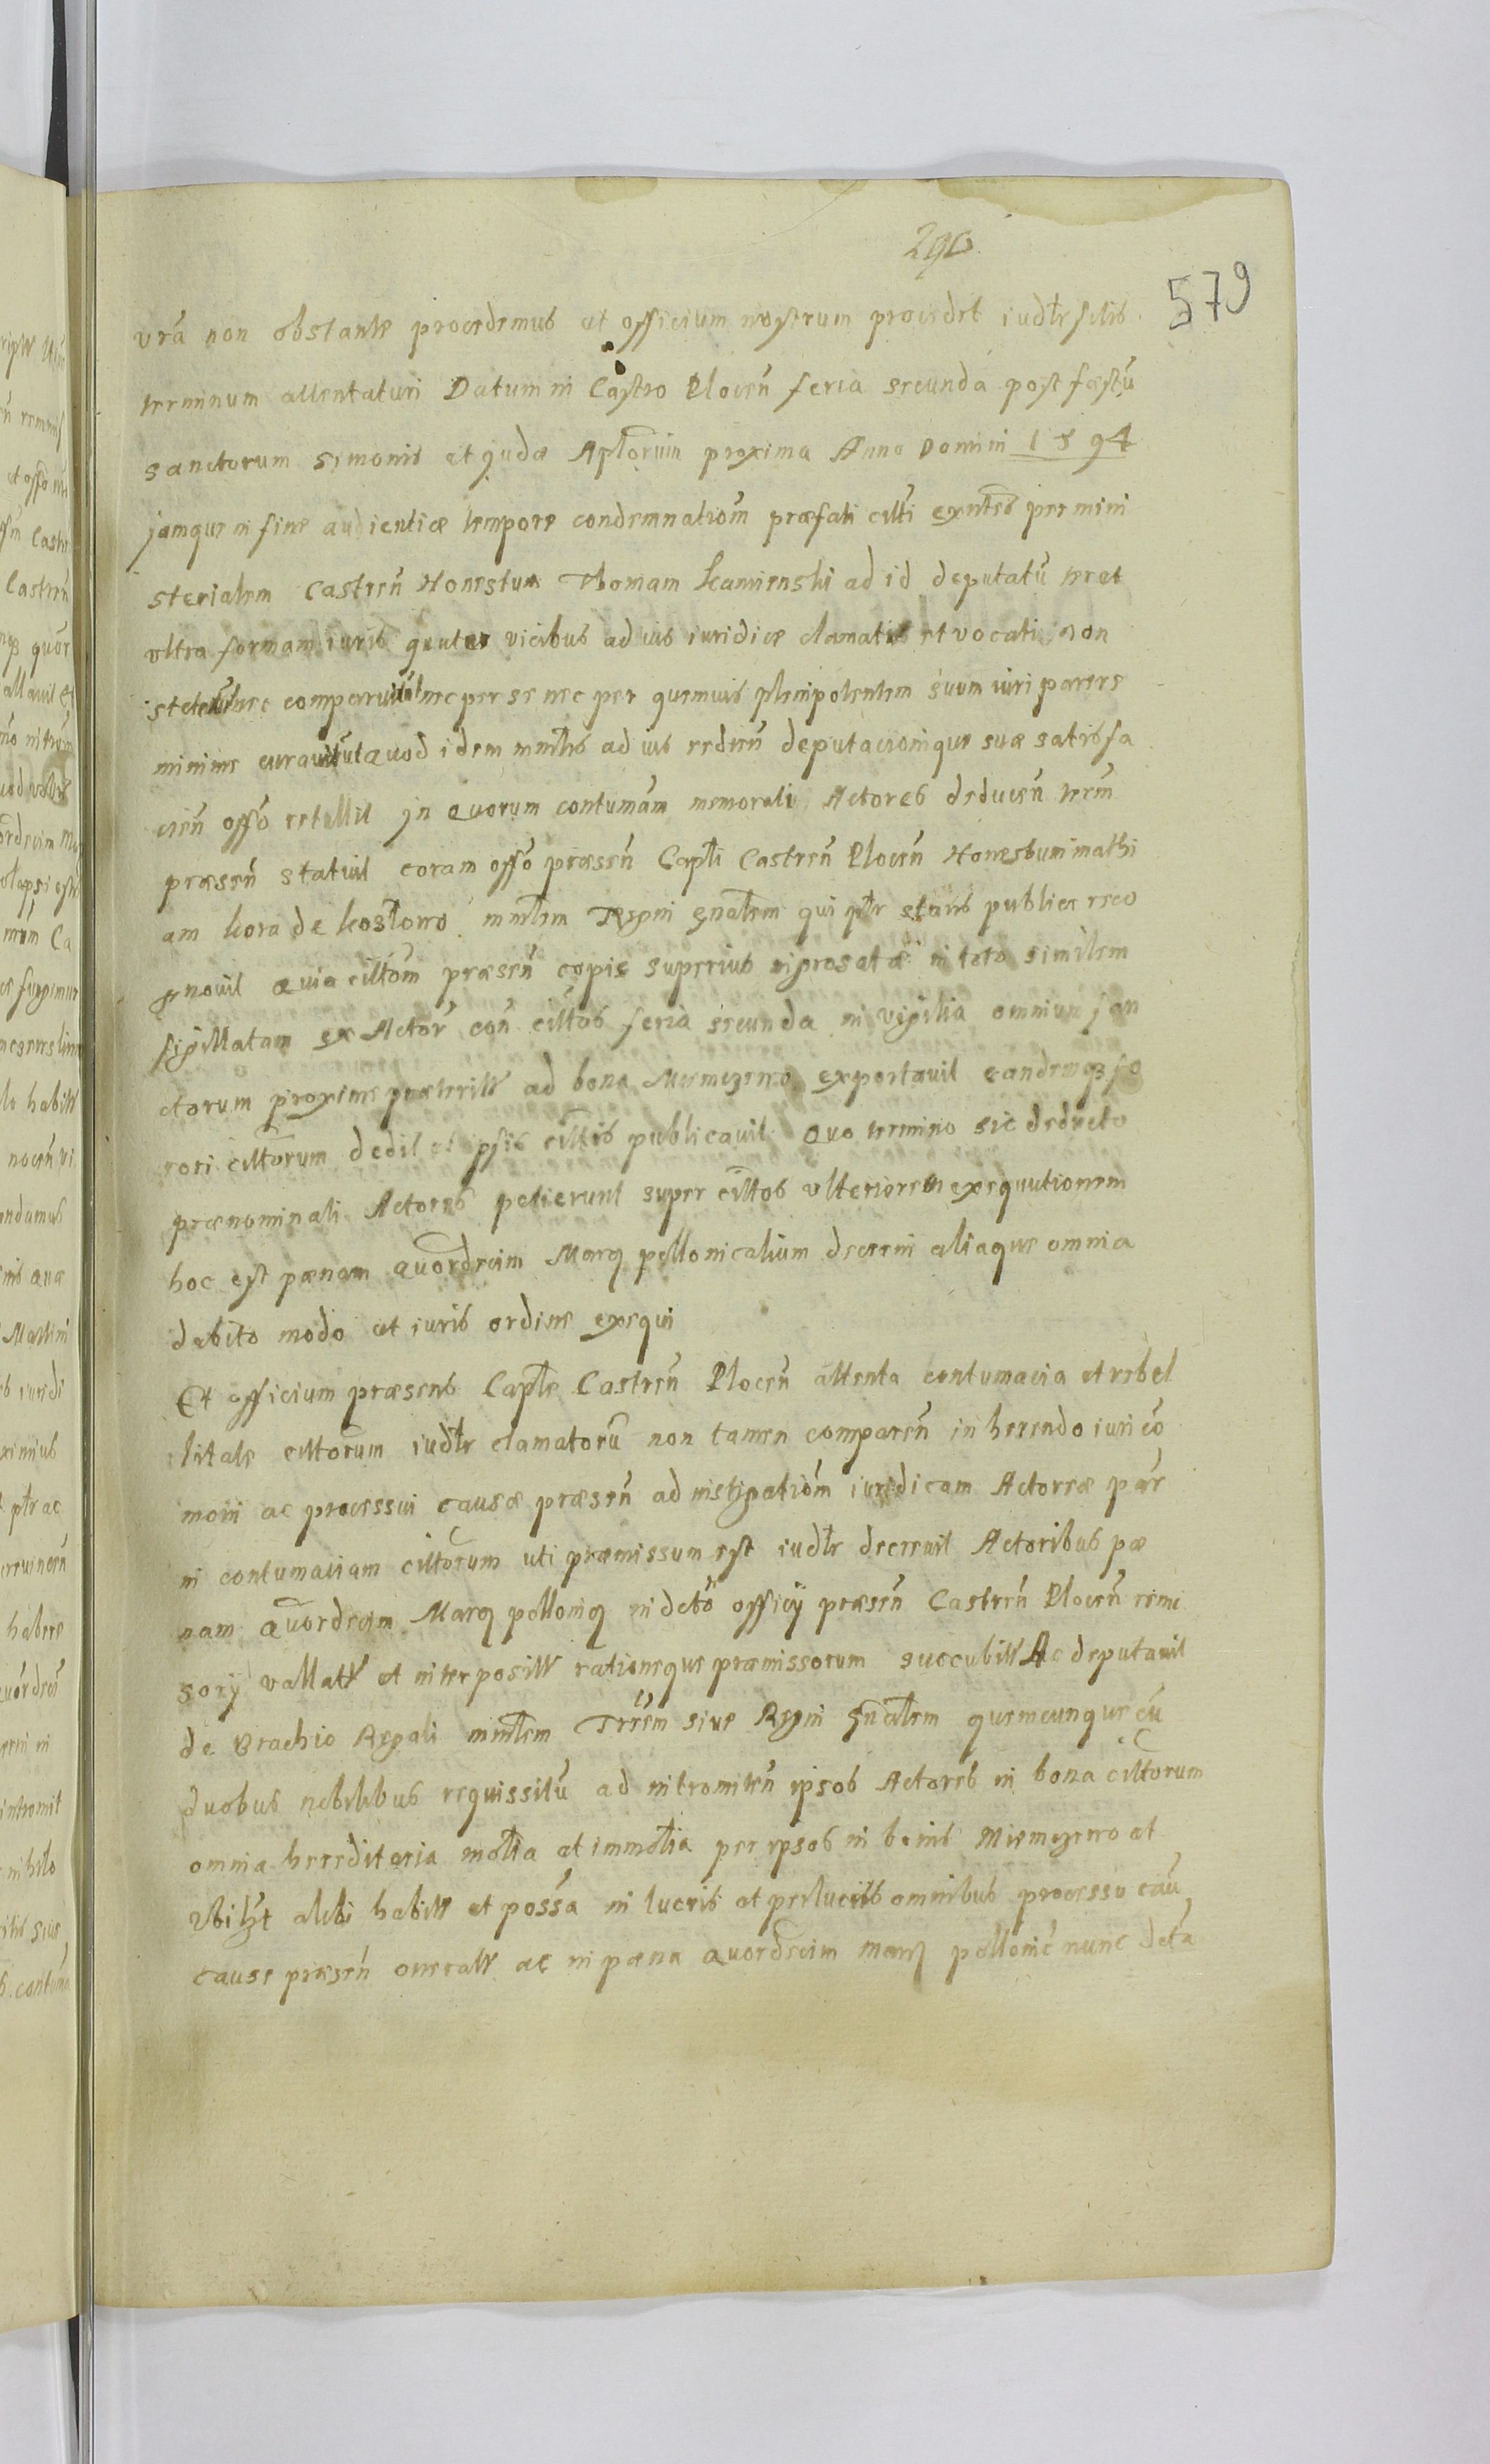 290
579
vr̃a non obstante procedemus et officium nostrum procedet iudlr̃ scitis
terminum attentaturi Datum in Castro Plocen̄ feria secunda post fæstū
sanctorum Simonis et Judæ Aplorum proxima Anno Domini 1594
jamque in fine audientiæ tempore condemnatiom̄ præfati citti exntēs per mini
sterialem Castren̄ Honestum Thomam Kamienski ad id deputatū ter et
vltra formam iuris quater vicibus ad ius iuridice clamati et vocati non
steterūt nec comparuerūt nec per se nec per quemuis plenipotentem suum iuri parere
minime curauerūt Quod idem mntlis ad ius rediēn deputacionique suæ satisfa
cien̄ offō retullit Jn Quorum contumām memorati Actores ducen̄ term̄
præsen̄ statuit coram offō præsen̄ Captli Castren̄ Plocen̄ Honestum Mathi
am Kora de Kozłowo mntlem Regni Gnalem qui ptlr stans publice reco
gnouit Quia cittom̄ præsen̄ copiæ superius ingrosatæ in toto similem
sigillatam ex Actor̄ con̄ cittos feria secunda in vigilia omnium san
ctorum proxime præterito ad bona Miemczewo exportauit eandemq3 so
rori cittorum dedit et ipsis cittis publicauit Quo termino sic deducto
prænominati Actores petierunt super cittos vlteriorem exequutionem
hoc est pænam Quordecim Marcs pollonicalium decerni aliaque omnia
debito modo et iuris ordine exequi
Et officium præsens Captle Castren̄ Plocen̄ attenta contumacia et rebel
litate cittorum iudlr̃ clamatorū non tamen comparen̄ in herendo iuri cō
moni ac processui causæ præsen̄ ad instigatiom̄ iuridicam Actoreæ par̄
in contumaciam cittorum uti præmissum est iudlr̃ decreuit Actoribus pæ
nam Quordecim Marcs pollonics in detō officij præsen̄ Castren̄ Plocen̄ remi
sorij vallat et interposit rationeque præmissorum succubit Ac deputauit
de Brachio Regali mntlem Trrēm siue Regni Gnalem quemcunque cū
duobus nobilibus requissitū ad intromiten̄ ipsos Actores in bona cittorum
omnia hereditaria motlia et immotlia per ipsos in bonis Miemczewo et
vbilzt alibi habit et possa in lucris et perlucris omnibus processu cau
cause præsen̄ onerat ac in pæna Quordecim marcs pollonic̄ nunc deta